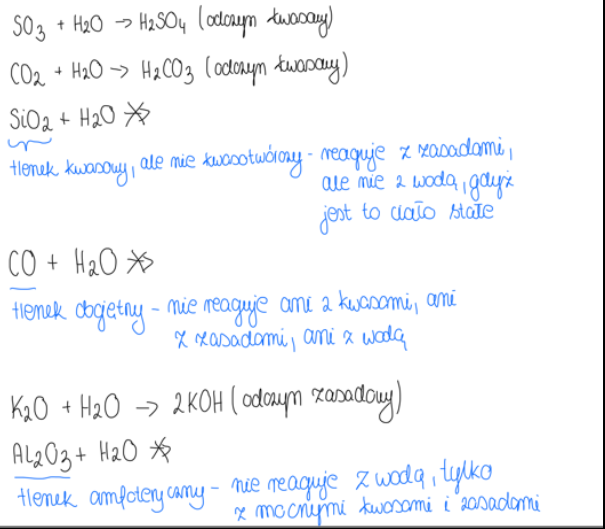 SO3 + H2O → H2SO4 (odczyn kwasowy)
CO2 + H2O → H2CO3 (odczyn kwasowy)
SiO2 + H2O ↛
tlenek kwasowy, ale nie kwasotwórczy - reaguje z zasadami,
ale nie z wodą, gdyż
jest to ciało stałe
CO + H2O ↛
tlenek obojętny - nie reaguje ani z kwasami, ani
z zasadami, ani z wodą
K2O + H2O → 2KOH (odczyn zasadowy)
Al2O3 + H2O ↛
tlenek amfoteryczny - nie reaguje z wodą, tylko
z mocnymi kwasami i zasadami